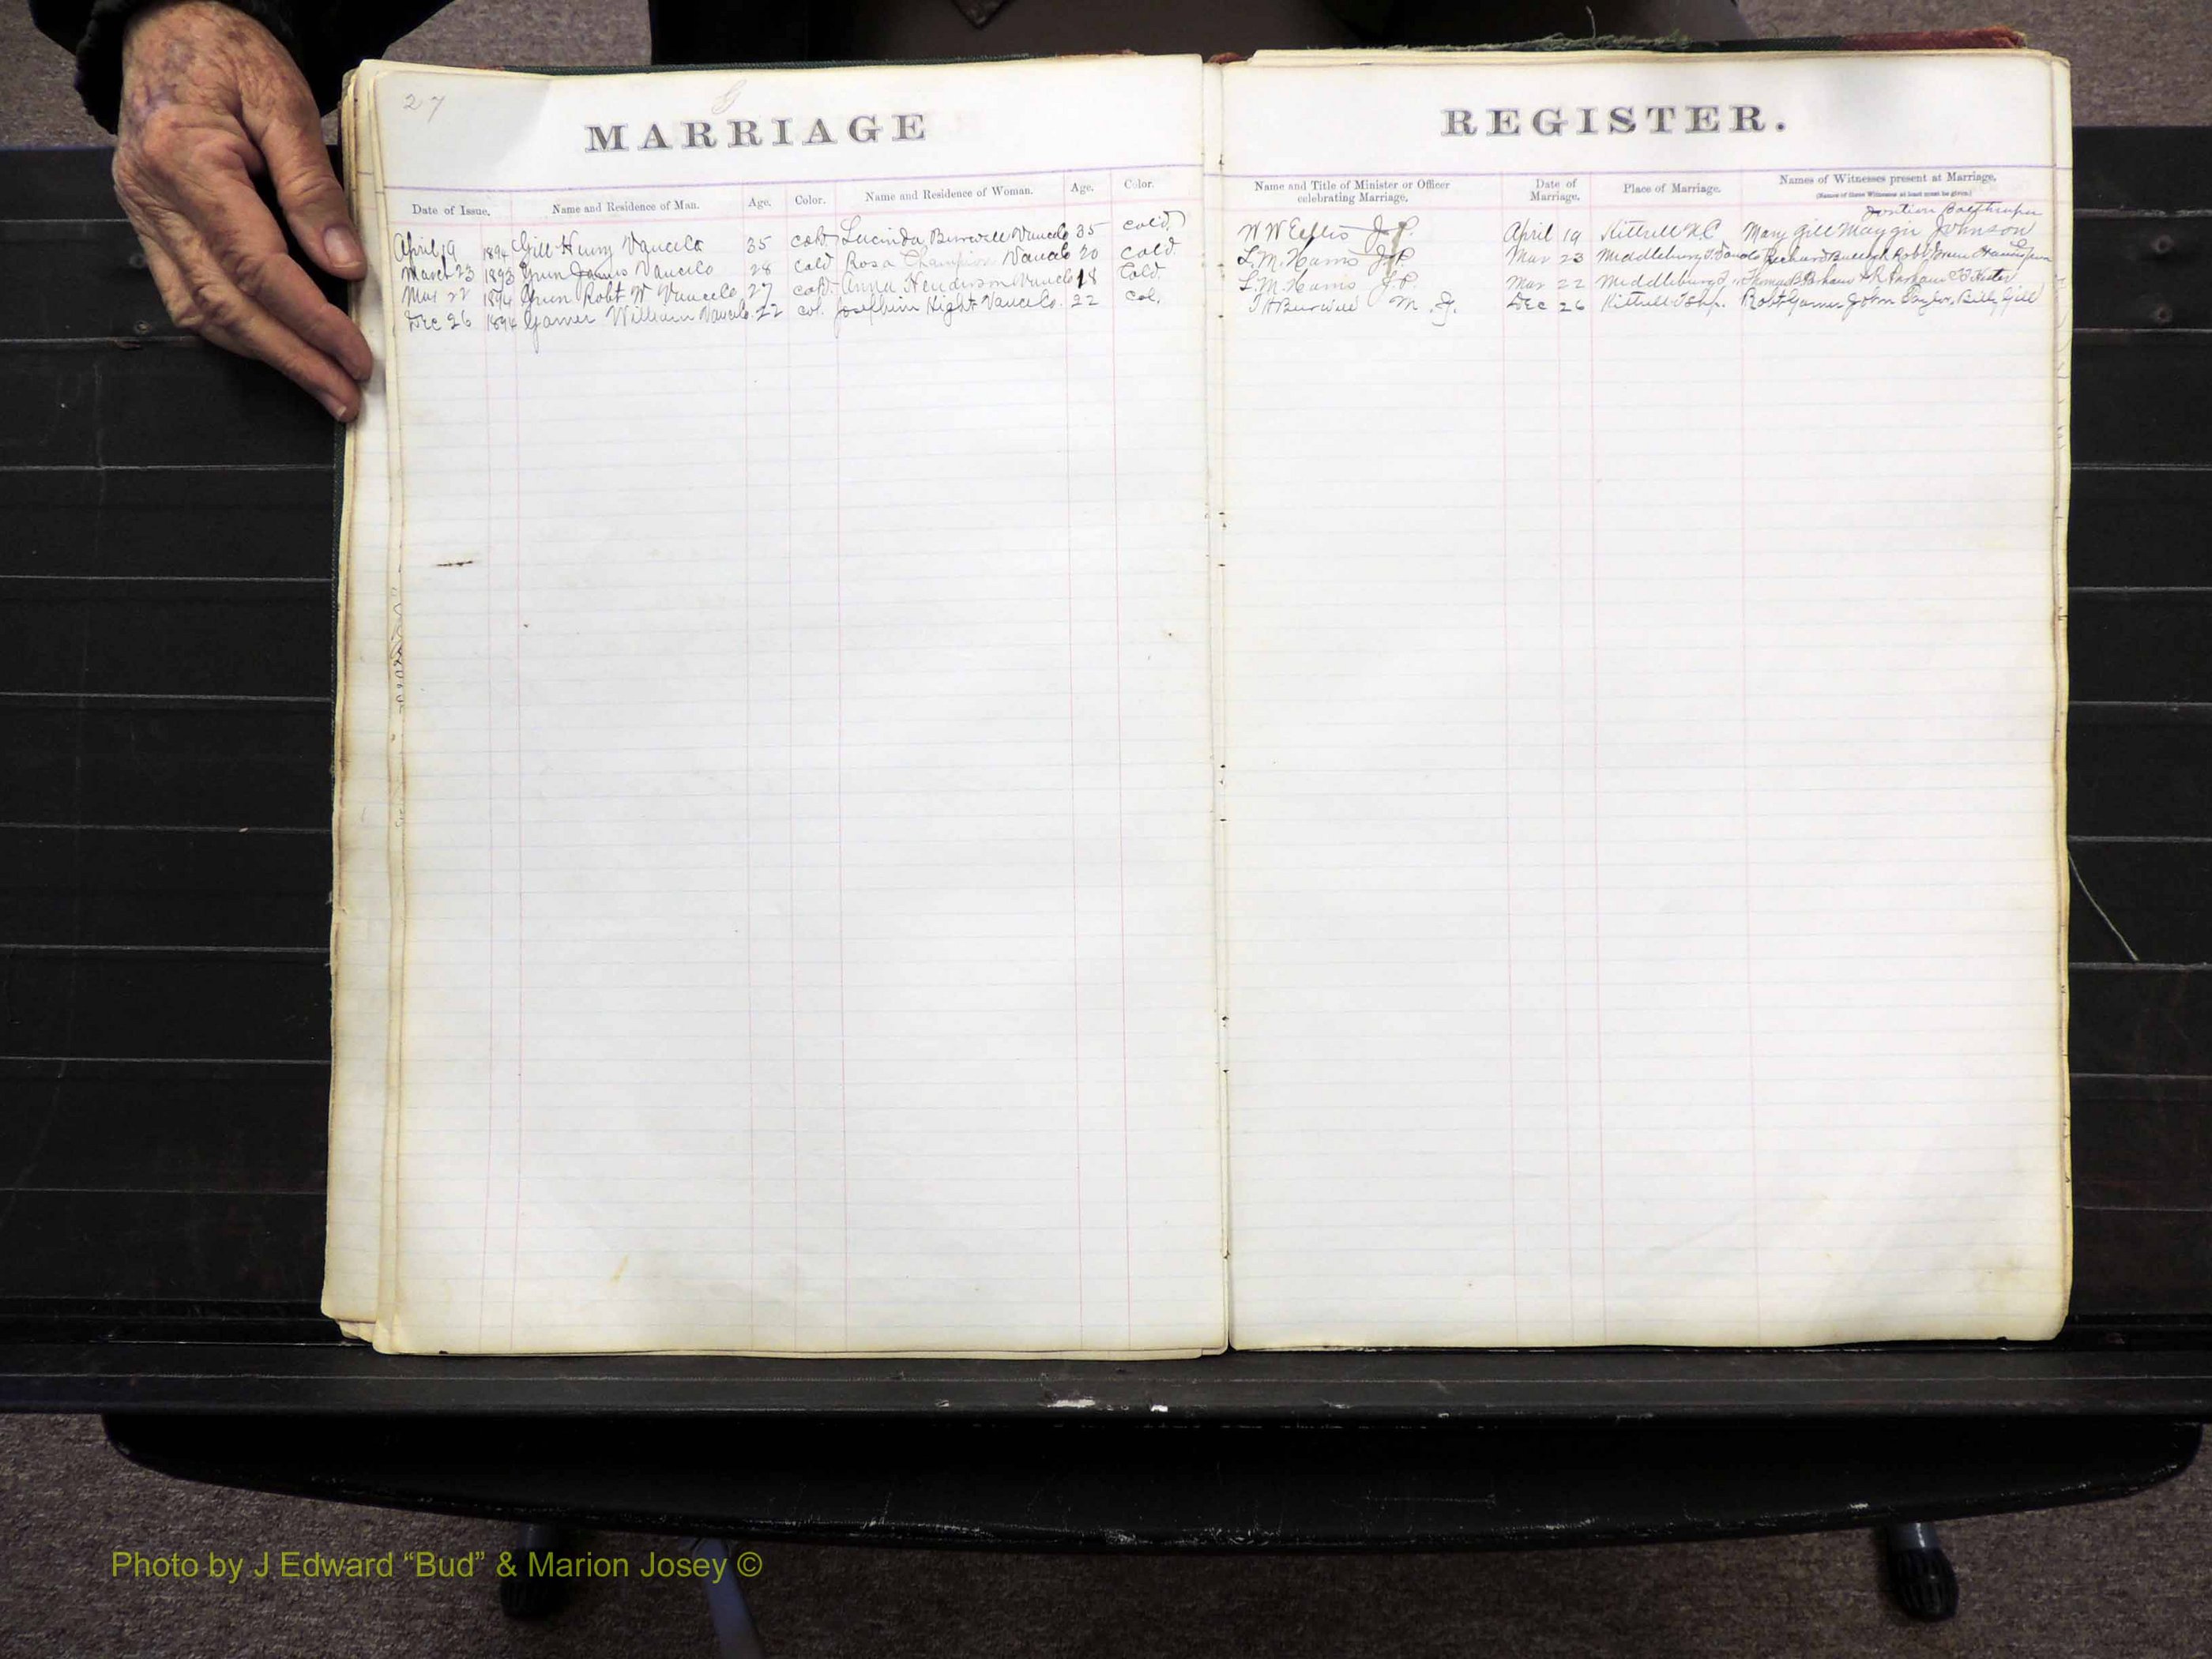 27
G
MARRIAGE
Date of Issue. Name and Residence of Man. Age. Color. Name and Residence of Woman. Age. Color.
April 19 1894 Gill Henry Vance Co 35 cold. Lucinda Burwell Vance Co 35 cold.
March 23 1893 James Vance Co 28 cold Rosa Champion Vance Co 20 cold.
Mar 22 1894 Robt W Vance Co 27 cold. Anna Henderson Vance Co 18 Cold.
Dec 26 1894 Garner William Vance Co. 22 col. Josephine Hight Vance Co. 22 col.
REGISTER.
Name and Title of Minister or Officer celebrating Marriage. Date of Marriage. Place of Marriage. Names of Witnesses present at Marriage.
(Names of three Witnesses at least must be given.)
W W J.P. April 19 Kittrell N.C Mary Gill Johnson
L.M. Harris J.P. Mar 23 Middleburg
L.M. Harris J.P. Mar 22 Middleburg
Burwell M.G. Dec 26 Kittrell Robt Garner John Billy Gill
Photo by J Edward “Bud” & Marion Josey ©